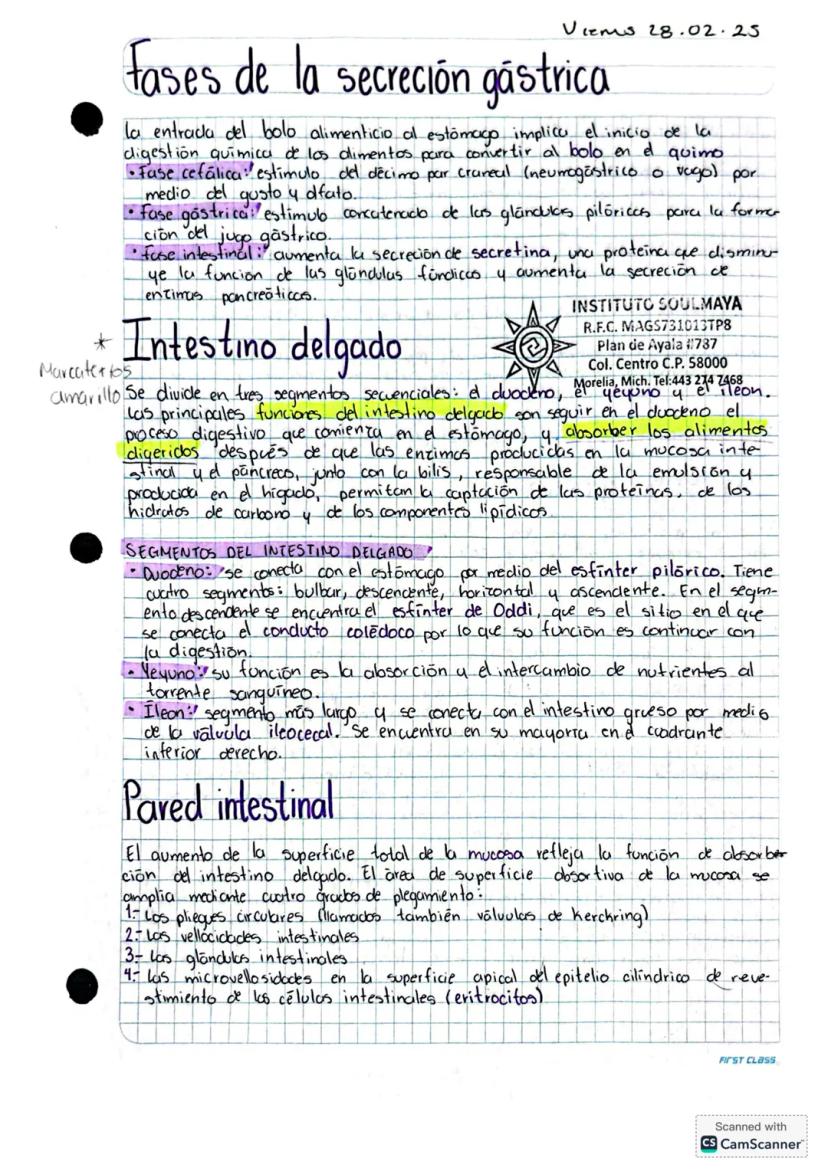 Viernes 28.02.25
Fases de la secreción gástrica
la entrada del bolo alimenticio al estómago implica el inicio de la
digestión química de los alimentos para convertir al bolo en el quimo
• Fase cefálica: estimulo del décimo par craneal (neumogástrico o vago) por
medio del gusto y olfato.
• Fase gástrica: estimulo concatenado de las glándulas pilóricas para la forma-
ción del jugo gástrico.
• Fase intestinal: aumenta la secreción de secretina, una proteína que disminu-
ye la funcion de las glándulas fúndicas y aumenta la secreción de
enzimas pancreáticas.
INSTITUTO SOULMAYA
R.F.C. MAGS731013TP8
Plan de Ayala #787
Col. Centro C.P. 58000
Morelia, Mich. Tel:443 274 7468
* Intestino delgado
Marcatextos
amarillo
Se divide en tres segmentos secuenciales: el duodeno, el yeyuno y el íleon.
Las principales funciones del intestino delgado son seguir en el duodeno el
proceso digestivo que comienza en el estómago, y absorber los alimentos
digeridos después de que las enzimas producidas en la mucosa inte-
stinal y el páncreas, junto con la bilis, responsable de la emulsión y
producida en el hígado, permitan la captación de las proteínas, de los
hidratos de carbono y de los componentes lipídicos.
SEGMENTOS DEL INTESTINO DELGADO
• Duodeno: se conecta con el estómago por medio del esfínter pilórico. Tiene
cuatro segmentos: bulbar, descendente, horizontal y ascendente. En el segm-
ento descendente se encuentra el esfínter de Oddi, que es el sitio en el que
se conecta el conducto colédoco por lo que su función es continuar con
la digestión.
• Yeyuno: su función es la absorción y el intercambio de nutrientes al
torrente sanguíneo.
• Íleon: segmento más largo y se conecta con el intestino grueso por medio
de la válvula ileocecal. Se encuentra en su mayoría en el cuadrante
inferior derecho.
Pared intestinal
El aumento de la superficie total de la mucosa refleja la función de absorber
ción del intestino delgado. El área de superficie absortiva de la mucosa se
amplia mediante cuatro grados de plegamiento:
1.- Los pliegues circulares (llamados también válvulas de Kerckring)
2.- Las vellocidades intestinales
3.- Las glándulas intestinales
4.- Las microvellosidades en la superficie apical del epitelio cilíndrico de reve-
stimiento de las células intestinales (eritrocitos)
FIRST CLASS
Scanned with
CS CamScanner